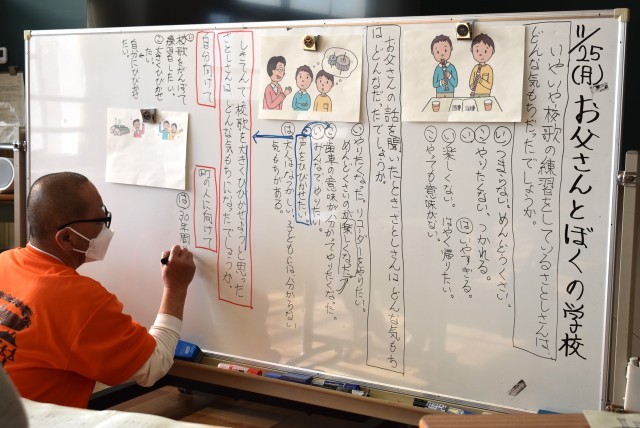 11/25(月)お父さんとぼくの学校
いやいや校歌の練習をしているさとしさんは、
どんな気もちだったでしょうか。
つまらない。めんどうくさい。
やりたくない。つかれる。
楽しくない。はやく帰りたい。
やっても意味がない。
お父さんの話を聞いたときさとしさんはどんな気もち
はどんなだったでしょうか。
やりたくなった。リコーダーをやりたい。
めんどくさいのが楽しくなった。
みんなでやりたい。
歯車の意味が分かってやりたくなった。
声をひびかせたい。
大人はなつかしい。子どもには分からない
気もちがある。
しきんで校歌を大きくひびかせようと思った
さとしさんは、どんな気もちになったでしょうか。
自分向け
町の人に向けて
校歌をがんばって
練習したい。
大きくひびかせ
たい。
自分にひびかせ
たい。
30年間